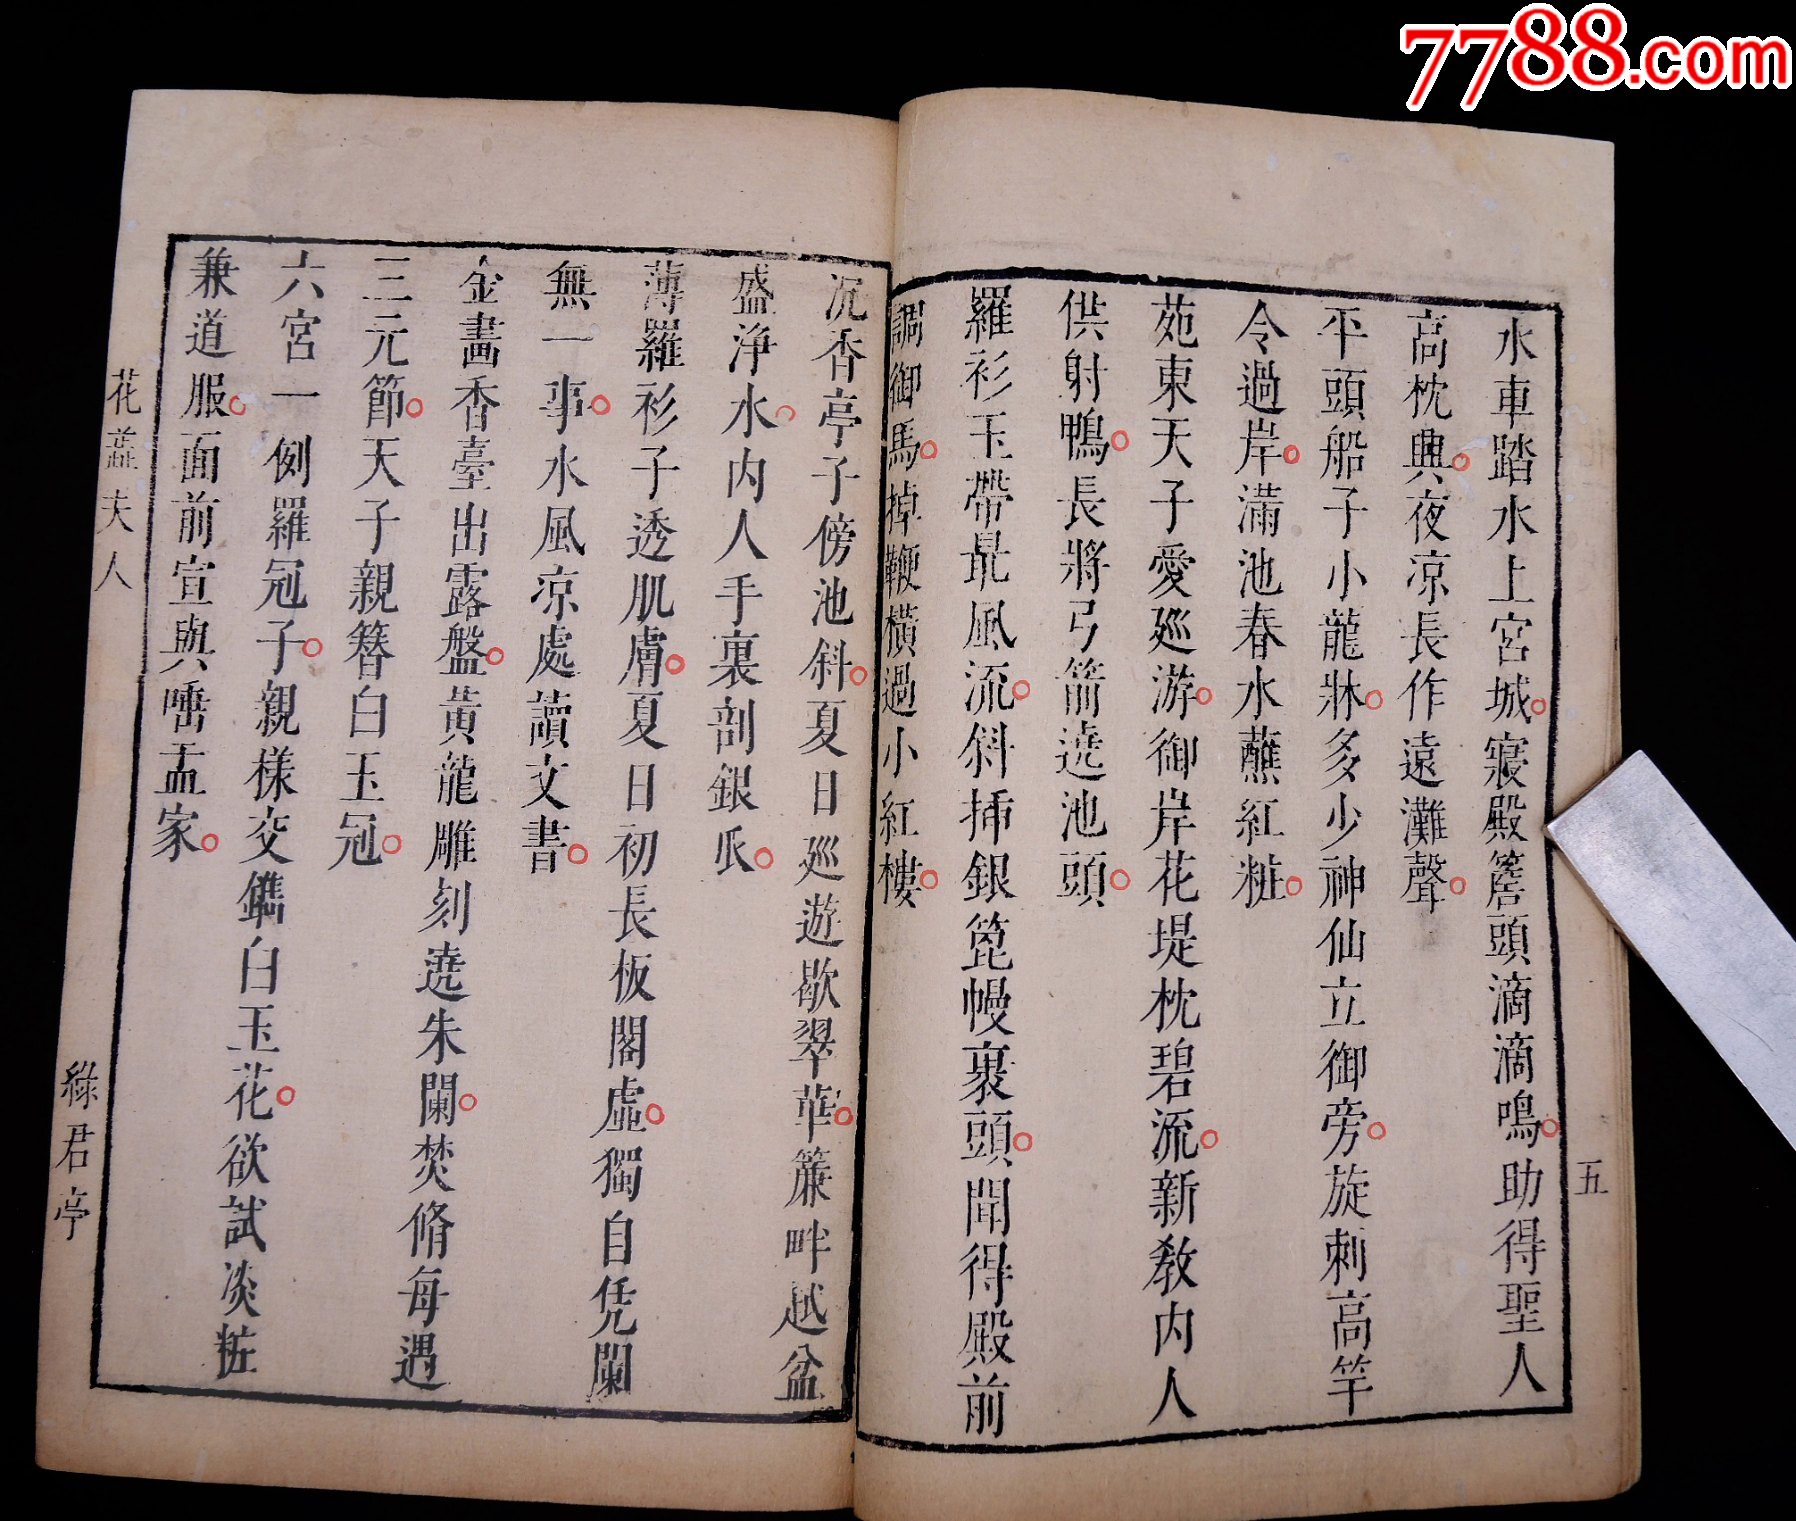 7788.com
水車踏水上宮城寢殿簷頭滴滴鳴助得聖人
高枕興夜凉長作遠灘聲
平頭船子小龍牀多少神仙立御旁旋刺高竿
令過岸滿池春水蘸紅粧
苑東天子愛廵游御岸花堤枕碧流新敎內人
供射鴨長將弓箭遶池頭
羅衫玉帶最風流斜揷銀篦幔裹頭聞得殿前
調御馬掉鞭橫過小紅樓
五
沉香亭子傍池斜夏日廵遊歇翠華簾畔越盆
盛淨水內人手裏剖銀瓜
薄羅衫子透肌膚夏日初長板閣虛獨自凭闌
無一事水風凉處讀文書
金畵香臺出露盤黃龍雕刻遶朱闌焚脩每遇
三元節天子親簪白玉冠
六宮一例羅冠子親樣交鐫白玉花欲試淡粧
兼道服面前宣與唾盂家
花蕋夫人
綠君亭